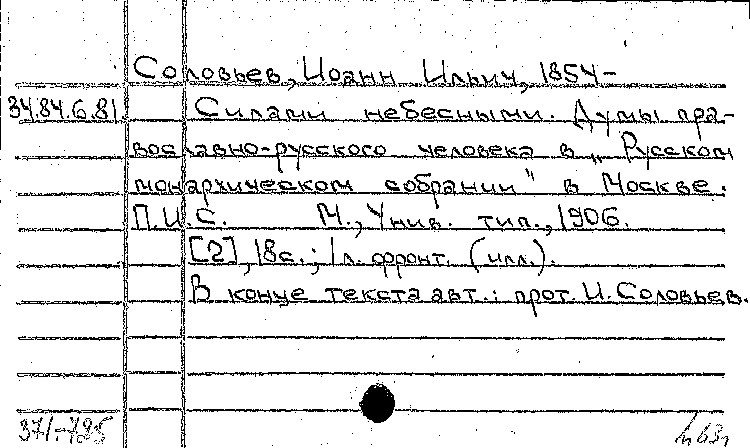 Соловьев, Иоанн Ильич, 1854-
34.84.6.81. Силами небесными. Думы пра-
вославно-русского человека в „Русском
монархическом собрании" в Москве.
П.И.С. М., Унив. тип., 1906.
[2], 18с.; 1 л. фронт. (илл.).
В конце текста авт.: прот. И. Соловьев.
371-795